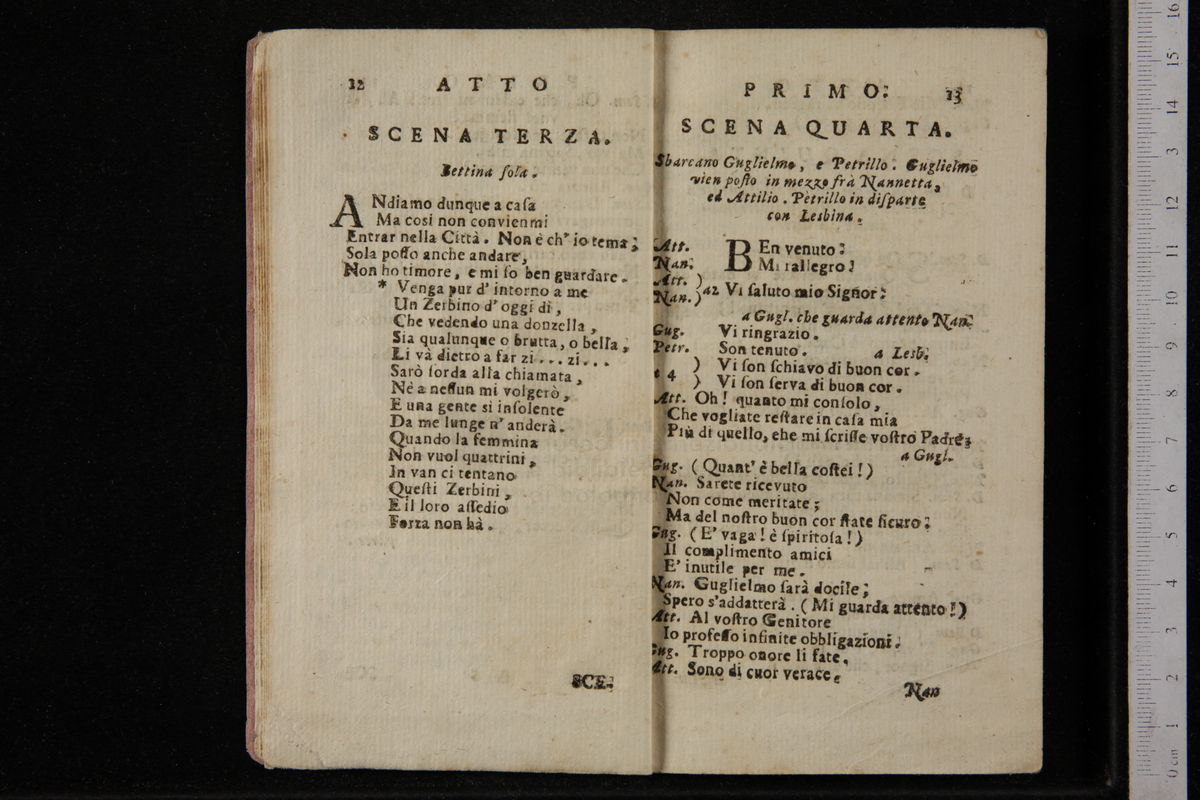 12 ATTO
SCENA TERZA.
Bettina sola.
ANdiamo dunque a casa
Ma cosi non convienmi
Entrar nella Città. Non è ch' io tema;
Sola posso anche andare,
Non ho timore, e mi so ben guardare.
* Venga pur d' intorno a me
Un Zerbino d' oggi dì,
Che vedendo una donzella,
Sia qualunque o brutta, o bella;
Li và dietro a far zi... zi...
Sarò sorda alla chiamata,
Nè a nessun mi volgerò,
E una gente sì insolente
Da me lunge n' anderà.
Quando la femmina
Non vuol quattrini,
In van ci tentano
Questi Zerbini,
E il loro assedio
Forza non hà.
SCE-
PRIMO. 13
SCENA QUARTA.
Sbarcano Guglielmo, e Petrillo. Guglielmo
vien posto in mezzo frà Nannetta,
ed Attilio. Petrillo in disparte
con Lesbina.
Att. BEn venuto!
Nan. Mi rallegro!
Att. )
Nan. ) a2 Vi saluto mio Signor:
a Gugl. che guarda attento Nan.
Gug. Vi ringrazio.
Petr. Son tenuto. a Lesb.
a 4 ) Vi son schiavo di buon cor.
) Vi son serva di buon cor.
Att. Oh! quanto mi consolo,
Che vogliate restare in casa mia
Più di quello, che mi scrisse vostro Padre;
a Gugl.
Gug. (Quant' è bella costei!)
Nan. Sarete ricevuto
Non come meritate;
Ma del nostro buon cor state sicuro;
Gug. (E' vaga! è spiritosa!)
Il complimento amici
E' inutile per me.
Nan. Guglielmo sarà docile;
Spero s'addatterà. (Mi guarda attento!)
Att. Al vostro Genitore
Io professo infinite obbligazioni.
Gug. Troppo onore li fate.
Att. Sono di cuor verace.
Nan